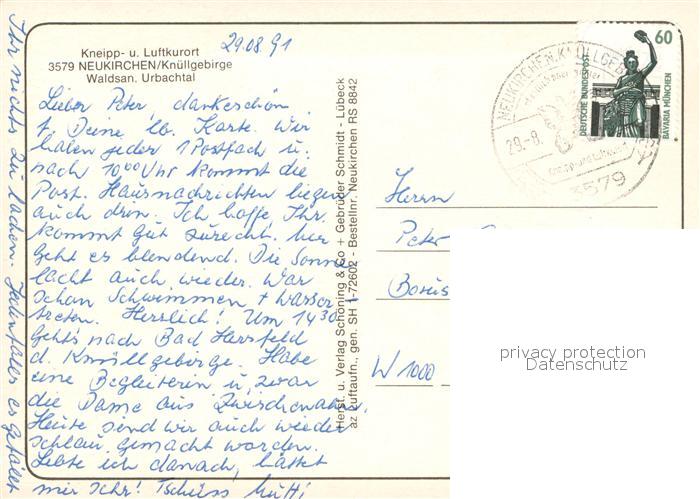 Kneipp- u. Luftkurort
3579 NEUKIRCHEN/Knüllgebirge
Waldsan. Urbachtal
29.08.91
Lieber Peter, dankeschön
f. Deine lb. Karte. Wir
haben jeder 1 Postfach u.
nach 10.00 Uhr kommt die
Post. Hausnachrichten liegen
auch drin. Ich hoffe Ihr
kommt gut zurecht. Mir
geht es blendend. Die Sonne
lacht auch wieder. War
schon Schwimmen + Wasser
treten. Herrlich! Um 14.30
geht's nach Bad Hersfeld
d. Knüllgebirge. Habe
eine Begleiterin u. zwar
die Dame aus Zwischenahn.
Heute sind wir auch wieder
schlau gemacht worden.
Lebte ich danach, hättet
mir sehr! Tschüss Mutti
Ihr nichts zu lachen. Jedenfalls es gefällt
Herst. u. Verlag Schöning & Co + Gebrüder Schmidt - Lübeck
az Luftaufn., gen. SH 1-72602 - Bestellnr. Neukirchen RS 8842
NEUKIRCHEN, KNÜLLGEB
29.-8.
Kneipp- und Luftkurort
3579
60
DEUTSCHE BUNDESPOST
BAVARIA MÜNCHEN
Herrn
Peter
W 1000
privacy protection
Datenschutz